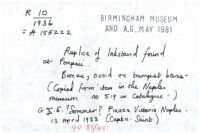 R 10
1936
= A 155222
BIRMINGHAM MUSEUM
AND A.G, MAY 1981
Replica of Inkstand found
at Pompeii.
Bronze, ovoid on trumpet base.
(Copied from item in the Naples
museum no 519 in Catalogue.)
G. "Sommer" Piazza Vittoria Naples.
13 April 1933 (Captn. Saint)